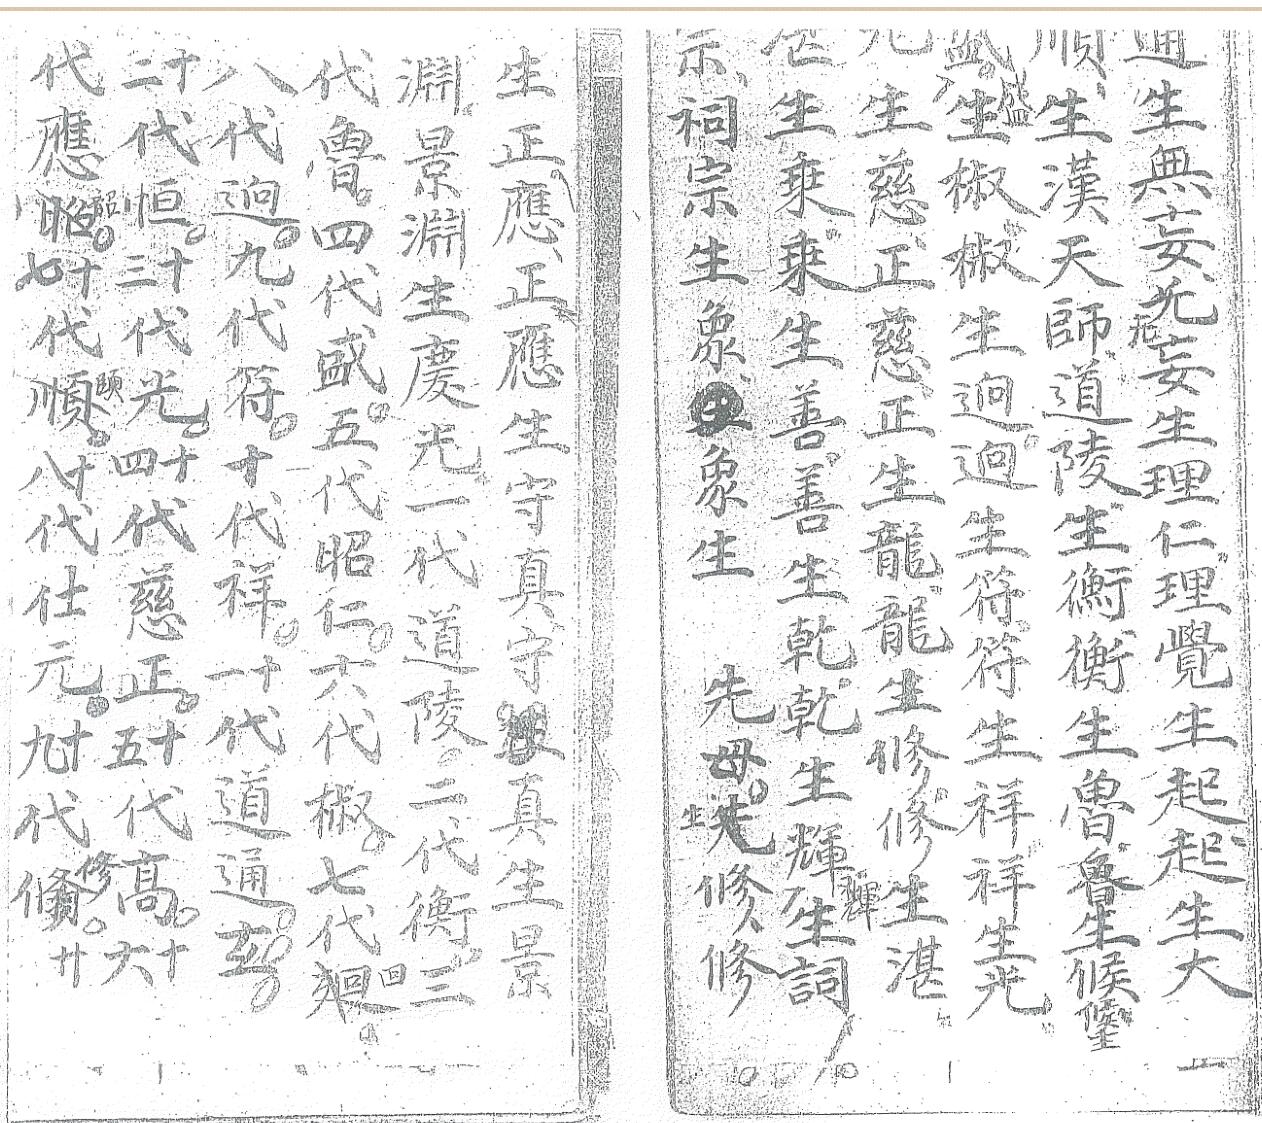 通生無妄无妄生理仁理覺生起起生大
順生漢天師道陵生衡衡生魯魯生候
盛生椒椒生迥迥生符符生祥祥生光
光生慈正慈正生龍龍生修修生湛
生乘乘生善善生乾乾生輝輝生詞
宗祠宗生象象生 先母先修修
生正應正應生守真守真生景
淵景淵生慶光一代道陵二代衡三
代魯四代盛五代昭仁六代椒七代廻回
八代迥九代符十代祥十一代道通玄
十二代恒十三代光十四代慈正十五代高十六
代應昭韶十七代順頤十八代仕元十九代脩修廿